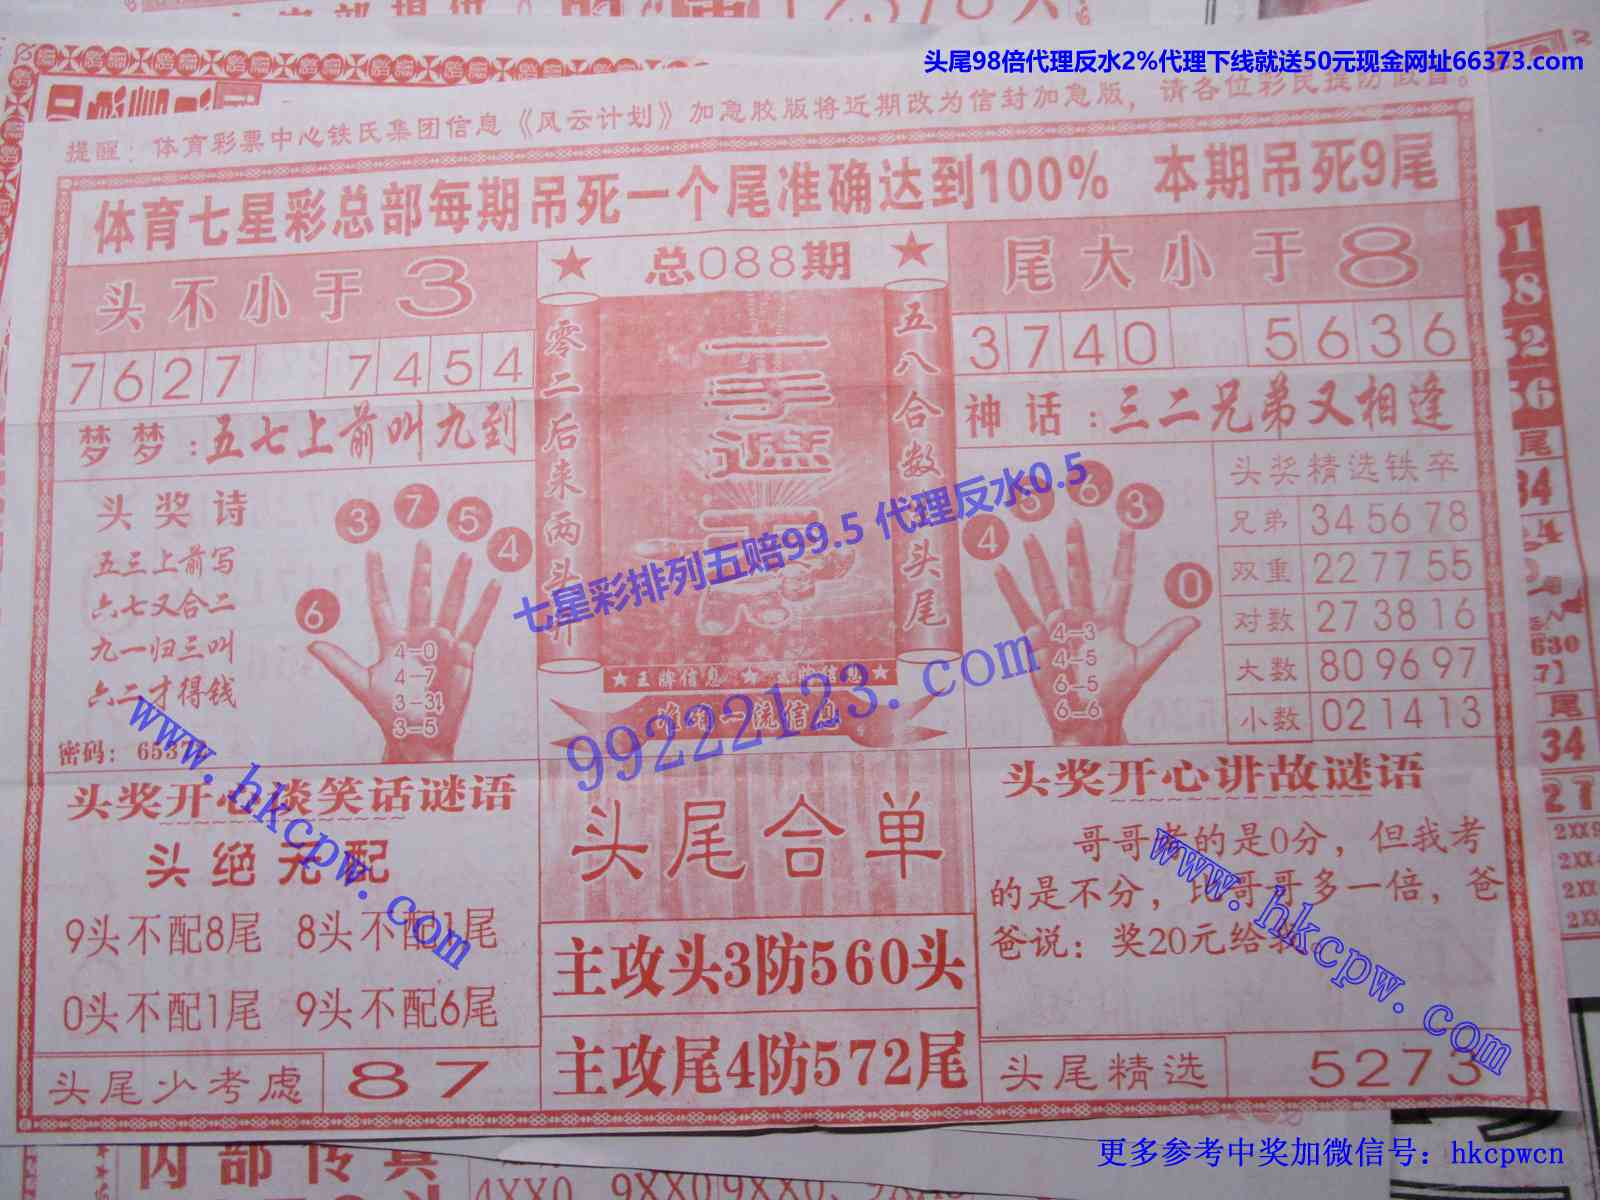 头尾98倍代理反水2%代理下线就送50元现金网址66373.com
提醒：体育彩票中心铁氏集团信息《风云计划》加急胶版将近期改为信封加急版，请各位彩民提防假冒。
体育七星彩总部每期吊死一个尾准确达到100% 本期吊死9尾
头不小于3
7627 7454
梦梦：五七上前叫九到
总088期
零二后来两头开
一手遮天
五八合数 头尾
王牌信息
准确一流信息
尾大小于8
3740 5636
神话：三二兄弟又相逢
头奖诗
五三上前写
六七又合二
九一归三叫
六二才得钱
密码：6537
3 7 5 4
6
4-0
4-7
3-3
3-5
4 5 6 3
0
4-3
4-5
6-5
6-6
头奖精选铁卒
兄弟 34 56 78
双重 22 77 55
对数 27 38 16
大数 80 96 97
小数 02 14 13
七星彩排列五赔99.5 代理反水0.5
99222123.com
www.hkcpw.com
头奖开心谈笑话谜语
头绝无配
9头不配8尾 8头不配1尾
0头不配1尾 9头不配6尾
头尾少考虑 87
头尾合单
主攻头3防560头
主攻尾4防572尾
头奖开心讲故谜语
哥哥考的是0分，但我考
的是不分，比哥哥多一倍，爸
爸说：奖20元给我
www.hkcpw.com
头尾精选 5273
内部传真
4XX0 9XX0 9XX0
更多参考中奖加微信号：hkcpwcn